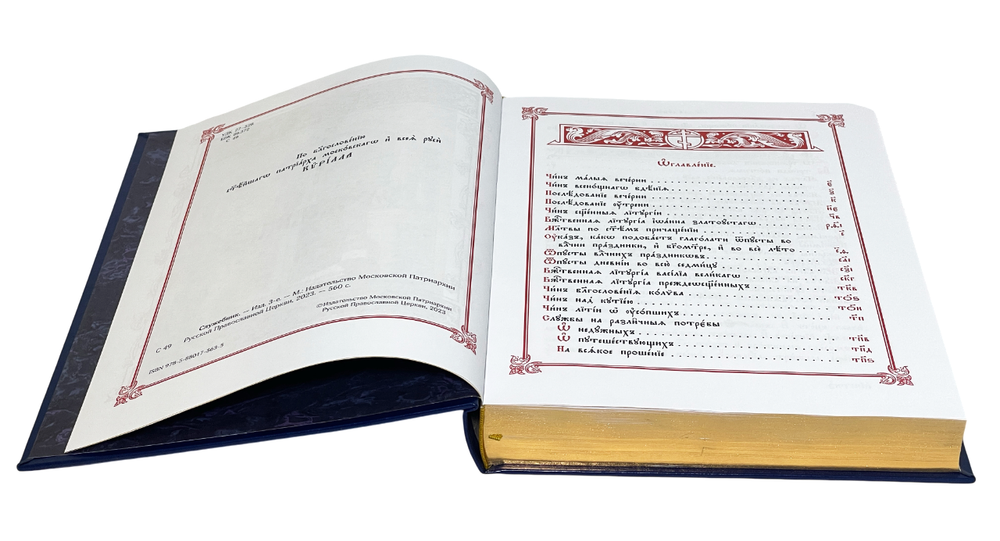 С 49
По благослове́нїю
ст҃ѣ́йшагѡ патрїа́рха моско́вскагѡ и҆ всеѧ̀ рꙋсѝ
КѴРІ́ЛЛА
Служебник. — Изд. 3-е. — М.: Издательство Московской Патриархии
С 49 Русской Православной Церкви, 2023. — 560 с.
©Издательство Московской Патриархии
Русской Православной Церкви, 2023
ISBN 978-5-88017-363-5
Ѡ҆главле́нїе.
Чи́нъ ма́лыѧ вече́рни
Чи́нъ всено́щнагѡ бдѣ́нїѧ
Послѣ́дованїе вече́рни
Послѣ́дованїе ᲂу҆́трени
Чи́нъ сщ҃е́нныѧ лїтꙋргі́и
Бж҃е́ственнаѧ лїтꙋргі́а і҆ѡа́нна златоꙋ́стагѡ
Мл҃твы по ст҃ѣ́мъ причаще́нїи
Оу҆ка́зъ, ка́кѡ подоба́етъ глаго́лати ѿпꙋ́сты во
влⷣчни пра́здники, и҆ бг҃оро́дичны, и҆ во всѐ лѣ́то
Ѿпꙋ́сты влⷣчнихъ пра́здникѡвъ
Ѿпꙋ́сты дне́внїи во всю̀ седми́цꙋ
Бж҃е́ственнаѧ лїтꙋргі́а васі́лїа вели́кагѡ
Бж҃е́ственнаѧ лїтꙋргі́а преждеѡсщ҃е́нныхъ
Чи́нъ блгⷭ҇ве́нїѧ ко́лѵва
Чи́нъ над̾ кꙋтїе́ю
Чи́нъ літі́и ѡ҆ ᲂу҆со́пшихъ
Слꙋ́жбы на разли́чныѧ потре́бы
Ѡ҆ недꙋ́жныхъ
Ѡ҆ пꙋтеше́ствꙋющихъ
На всѧ́кое проше́нїе